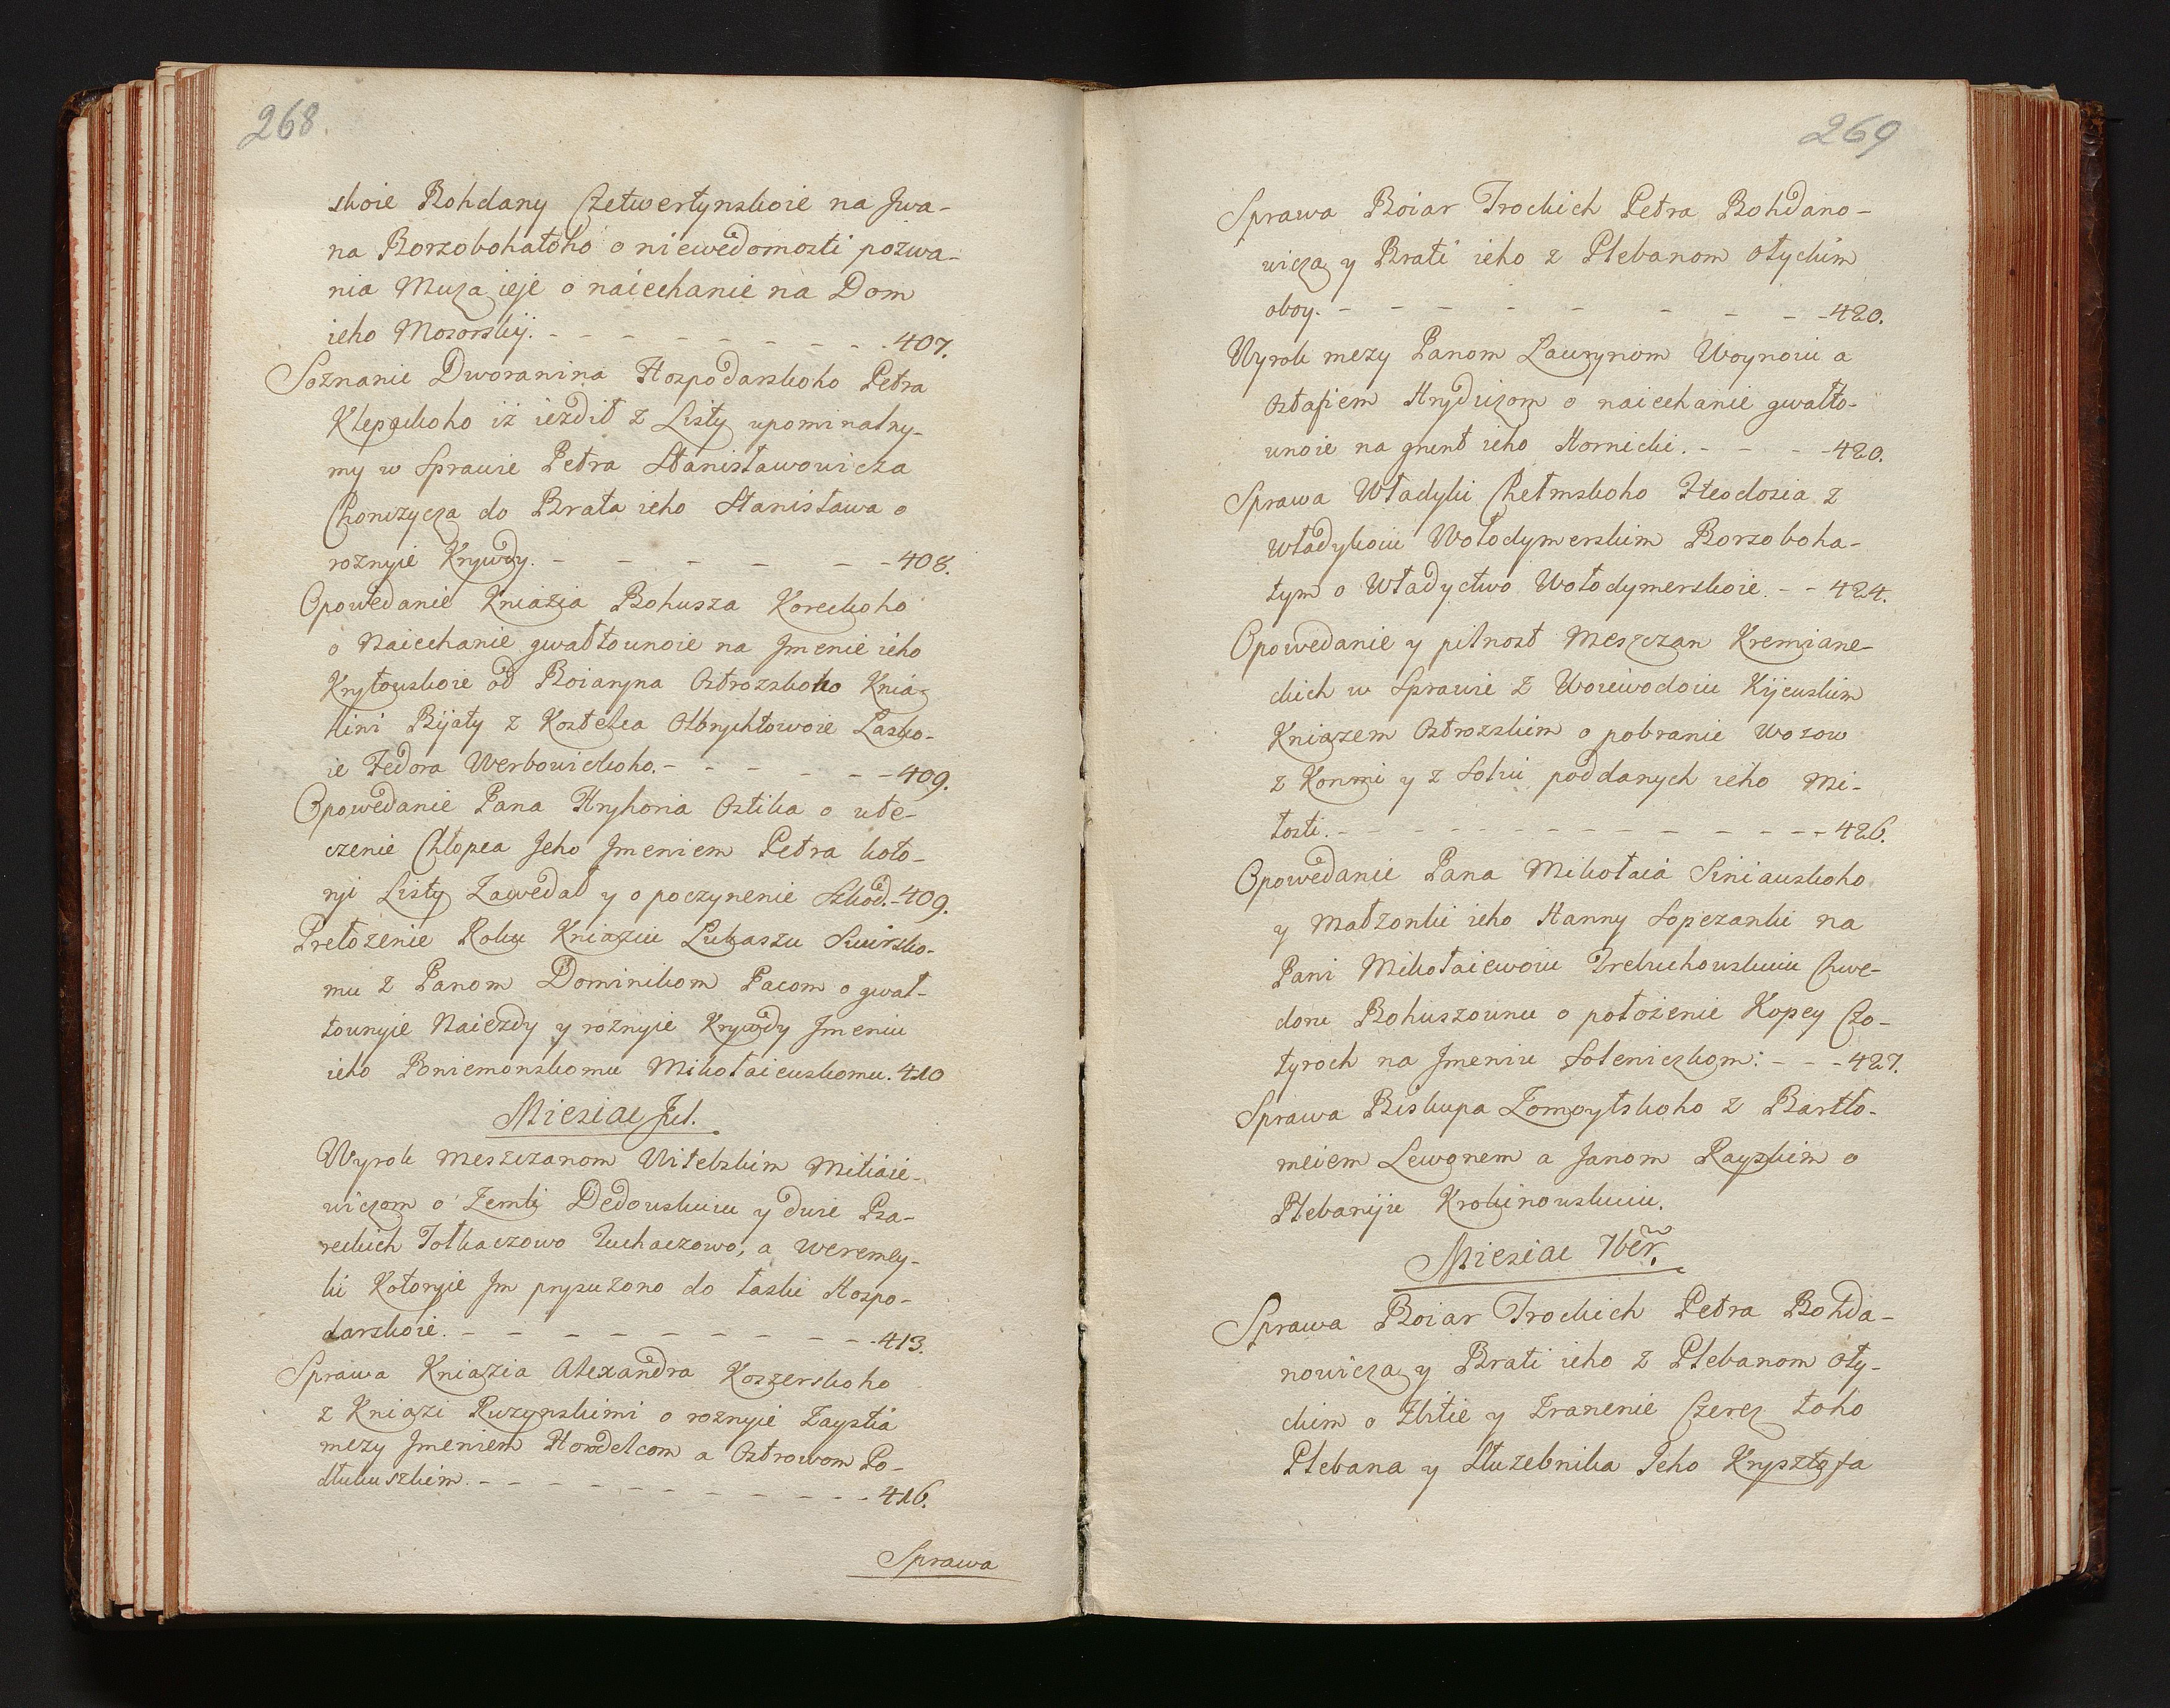 268.
skoie Bohdany Czetwertynskoie na Jwa-
na Borzobohatoho o niewedomosti pozwa-
nia Muza ieje o naiechanie na Dom
ieho Mosorskij. - - - - - - - - - 407.
Soznanie Dworanina Hospodarskoho Petra
Klepackoho iż iezdił z Listy upominalny-
my w Sprawie Petra Stanisławowicza
Chonizycza do Brata ieho Stanisława o
roznyie Krywdy. - - - - - - 408.
Opowedanie Kniazia Bohusza Koreckoho
o Naiechanie gwałtownoie na Jmenie ieho
Kryłowskoie od Boiaryna Ostrozskoho Knia-
hini Bijaty z Kosteła Olbrychtowoie Lasko-
ie Fedora Werbowickoho. - - - - - - 409.
Opowedanie Pana Hryhoria Ostika o ute-
czenie Chłopca Jeho Jmeniem Petra koto-
ryi Listy Zawedał y o poczynenie Szkod. - 409.
Prełozenie Roku Kniaziu Lukaszu Swirsko-
mu z Panom Dominikom Pacom o gwał-
townyie Naiezdy y roznyie Krywdy Jmeniu
ieho Poniemonskomu Mikołaiewskomu. 410
Miesiac Jul.
Wyrok Meszczanom Witebskim Mitiaie-
wiczom o Zemli Dedowskuiu y dwie Psa-
reckich Tołkaczowo Zuchaczowo, a Weremey-
ki Kotoryie Jm prysuzono do łaski Hospo-
darskoie. - - - - - - - - - - 413.
Sprawa Kniazia Alexandra Koszerskoho
z Kniazi Ruzynskimi o roznyie Zaystia
mezy Jmeniem Horodelcom a Ostrowom Po-
dłukuszkim. - - - - - - - - - - 416.
Sprawa
269
Sprawa Boiar Trockich Petra Bohdano-
wicza y Brati ieho z Plebanom Ołyckim
oboy. - - - - - - - - - 420.
Wyrok mezy Panom Lawrynom Woynoiu a
Ostafiem Hrydiczom o naiechanie gwałto-
wnoie na grunt ieho Hornicki. - - - - 420.
Sprawa Władyki Chełmskoho Fteodosia z
Władykoiu Wołodymerskim Borzoboha-
tym o Władyctwo Wołodymerskoie. - - 424.
Opowedanie y pilnost Meszczan Kremiane-
ckich w Sprawie z Woiewodoiu Kijewskim
Kniazem Ostrozskim o pobranie Wozow
z Konmi y z Soliu poddanych ieho Mi-
łosti. - - - - - - - - - - - - 426.
Opowedanie Pana Mikołaia Siniawskoho
y Małzonki ieho Hanny Sopezanki na
Pani Mikołaiewoiu Trebuchowskuiu Chwe-
doru Bohuszownu o położenie Kopey Czo-
tyroch na Jmeniu Soleniczkom: - - - 427.
Sprawa Biskupa Zomoytskoho z Barthło-
meiem Lewonem a Janom Rayskim o
Plebaniju Krokinowskuiu.
Miesiac 7ber.
Sprawa Boiar Trockich Petra Bohda-
nowicza y Brati ieho z Plebanom Oły-
ckim o Zbitie y Zranenie Czerez toho
Plebana y Służebnika Jeho Krysztofa